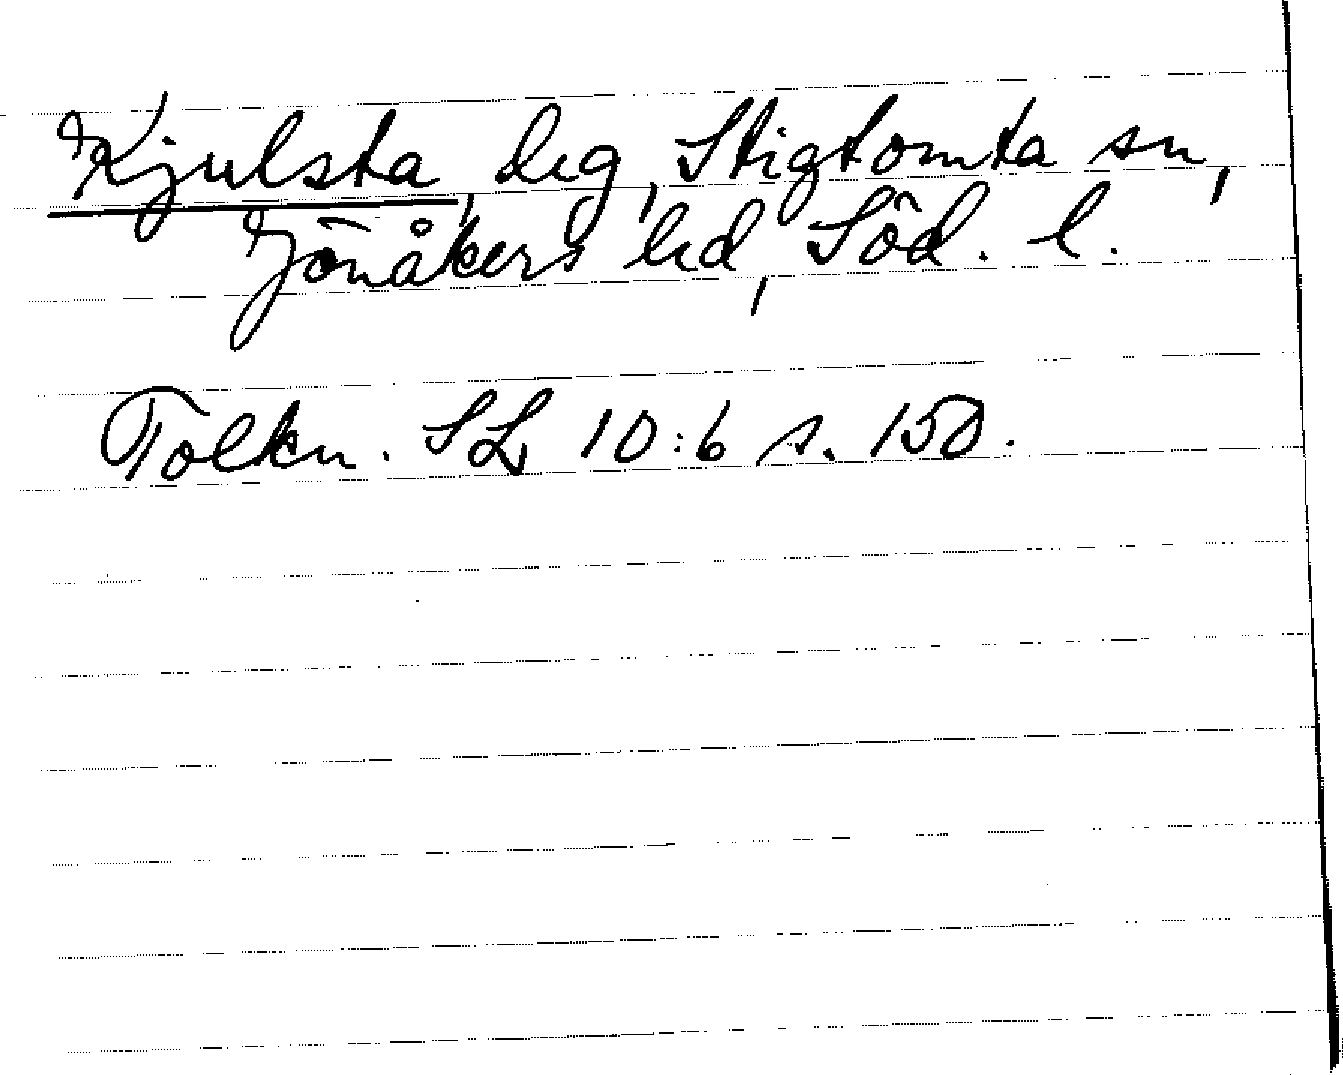 Kjulsta, hg, Stigtomta sn,
Jönåkers hd, Söd. l.
Tolkn. SL 10:6 s. 150.